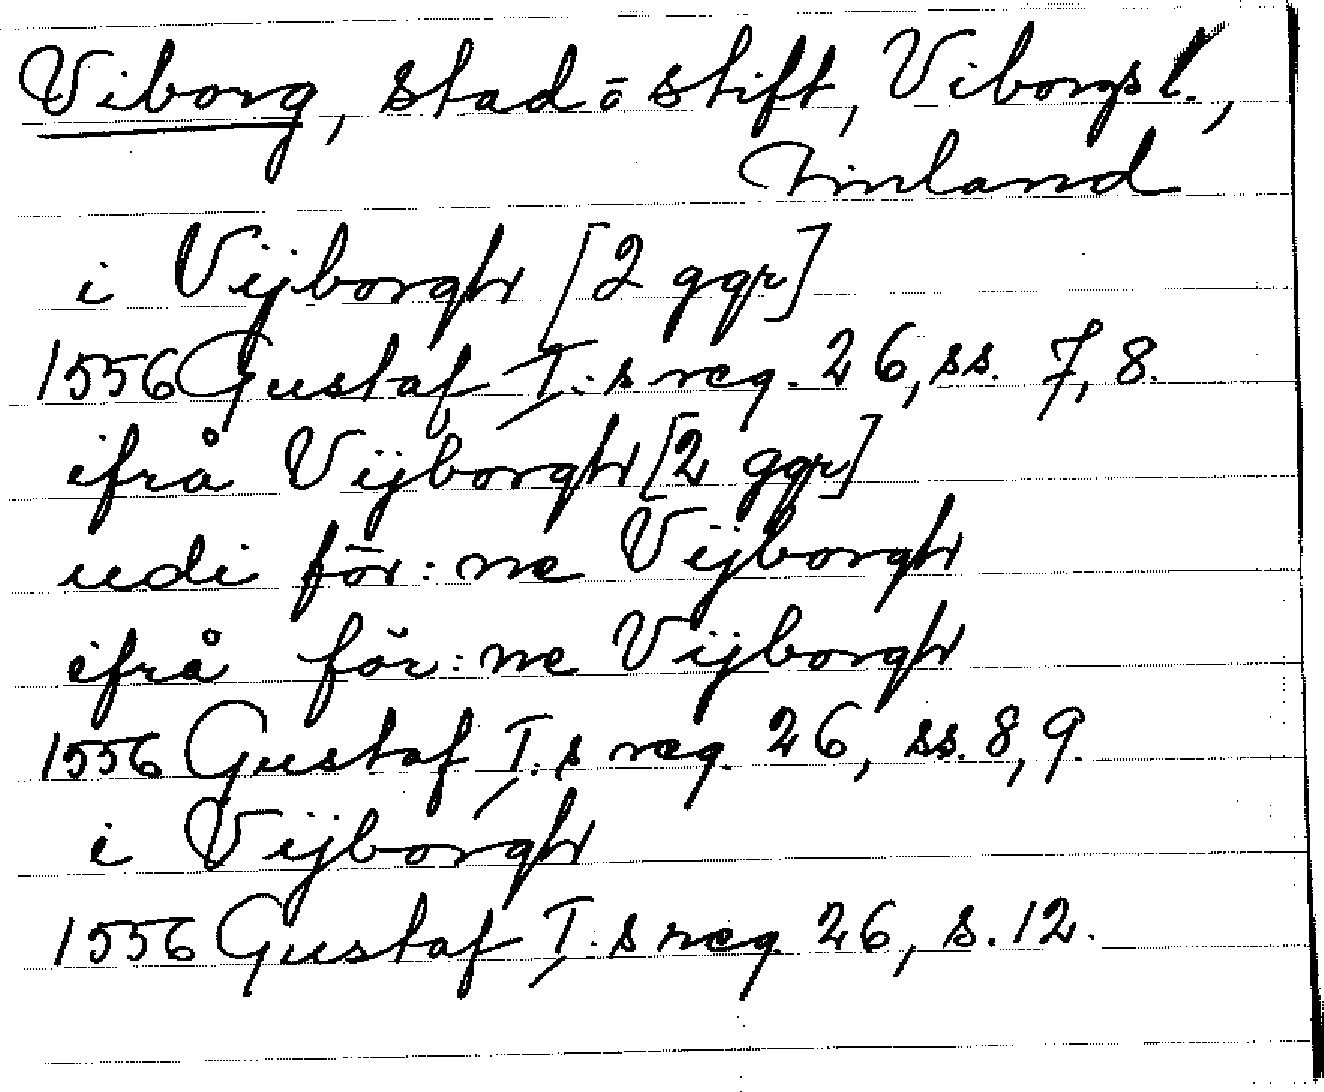 Viborg, stad ō stift, Viborgs l.,
Finland
i Vijborgh [2 ggr]
1556 Gustaf I:s reg. 26, ss. 7, 8.
ifrå Vijborgh [2 ggr]
udi för:ne Vijborgh
ifrå för:ne Vijborgh
1556 Gustaf I:s reg. 26, ss. 8, 9.
i Vijborgh
1556 Gustaf I:s reg 26, s. 12.